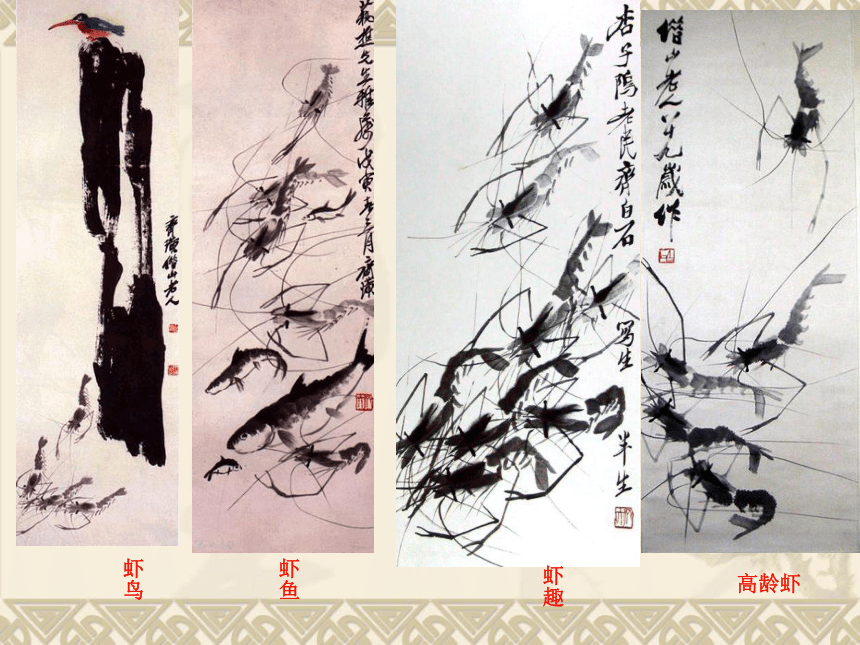 齊璜借山老人
先生雅屬戊寅春三月齊璜
杏子隖老民齊白石
寫生
半生
借山老人八十九歲作
虾鸟
虾鱼
虾趣
高龄虾